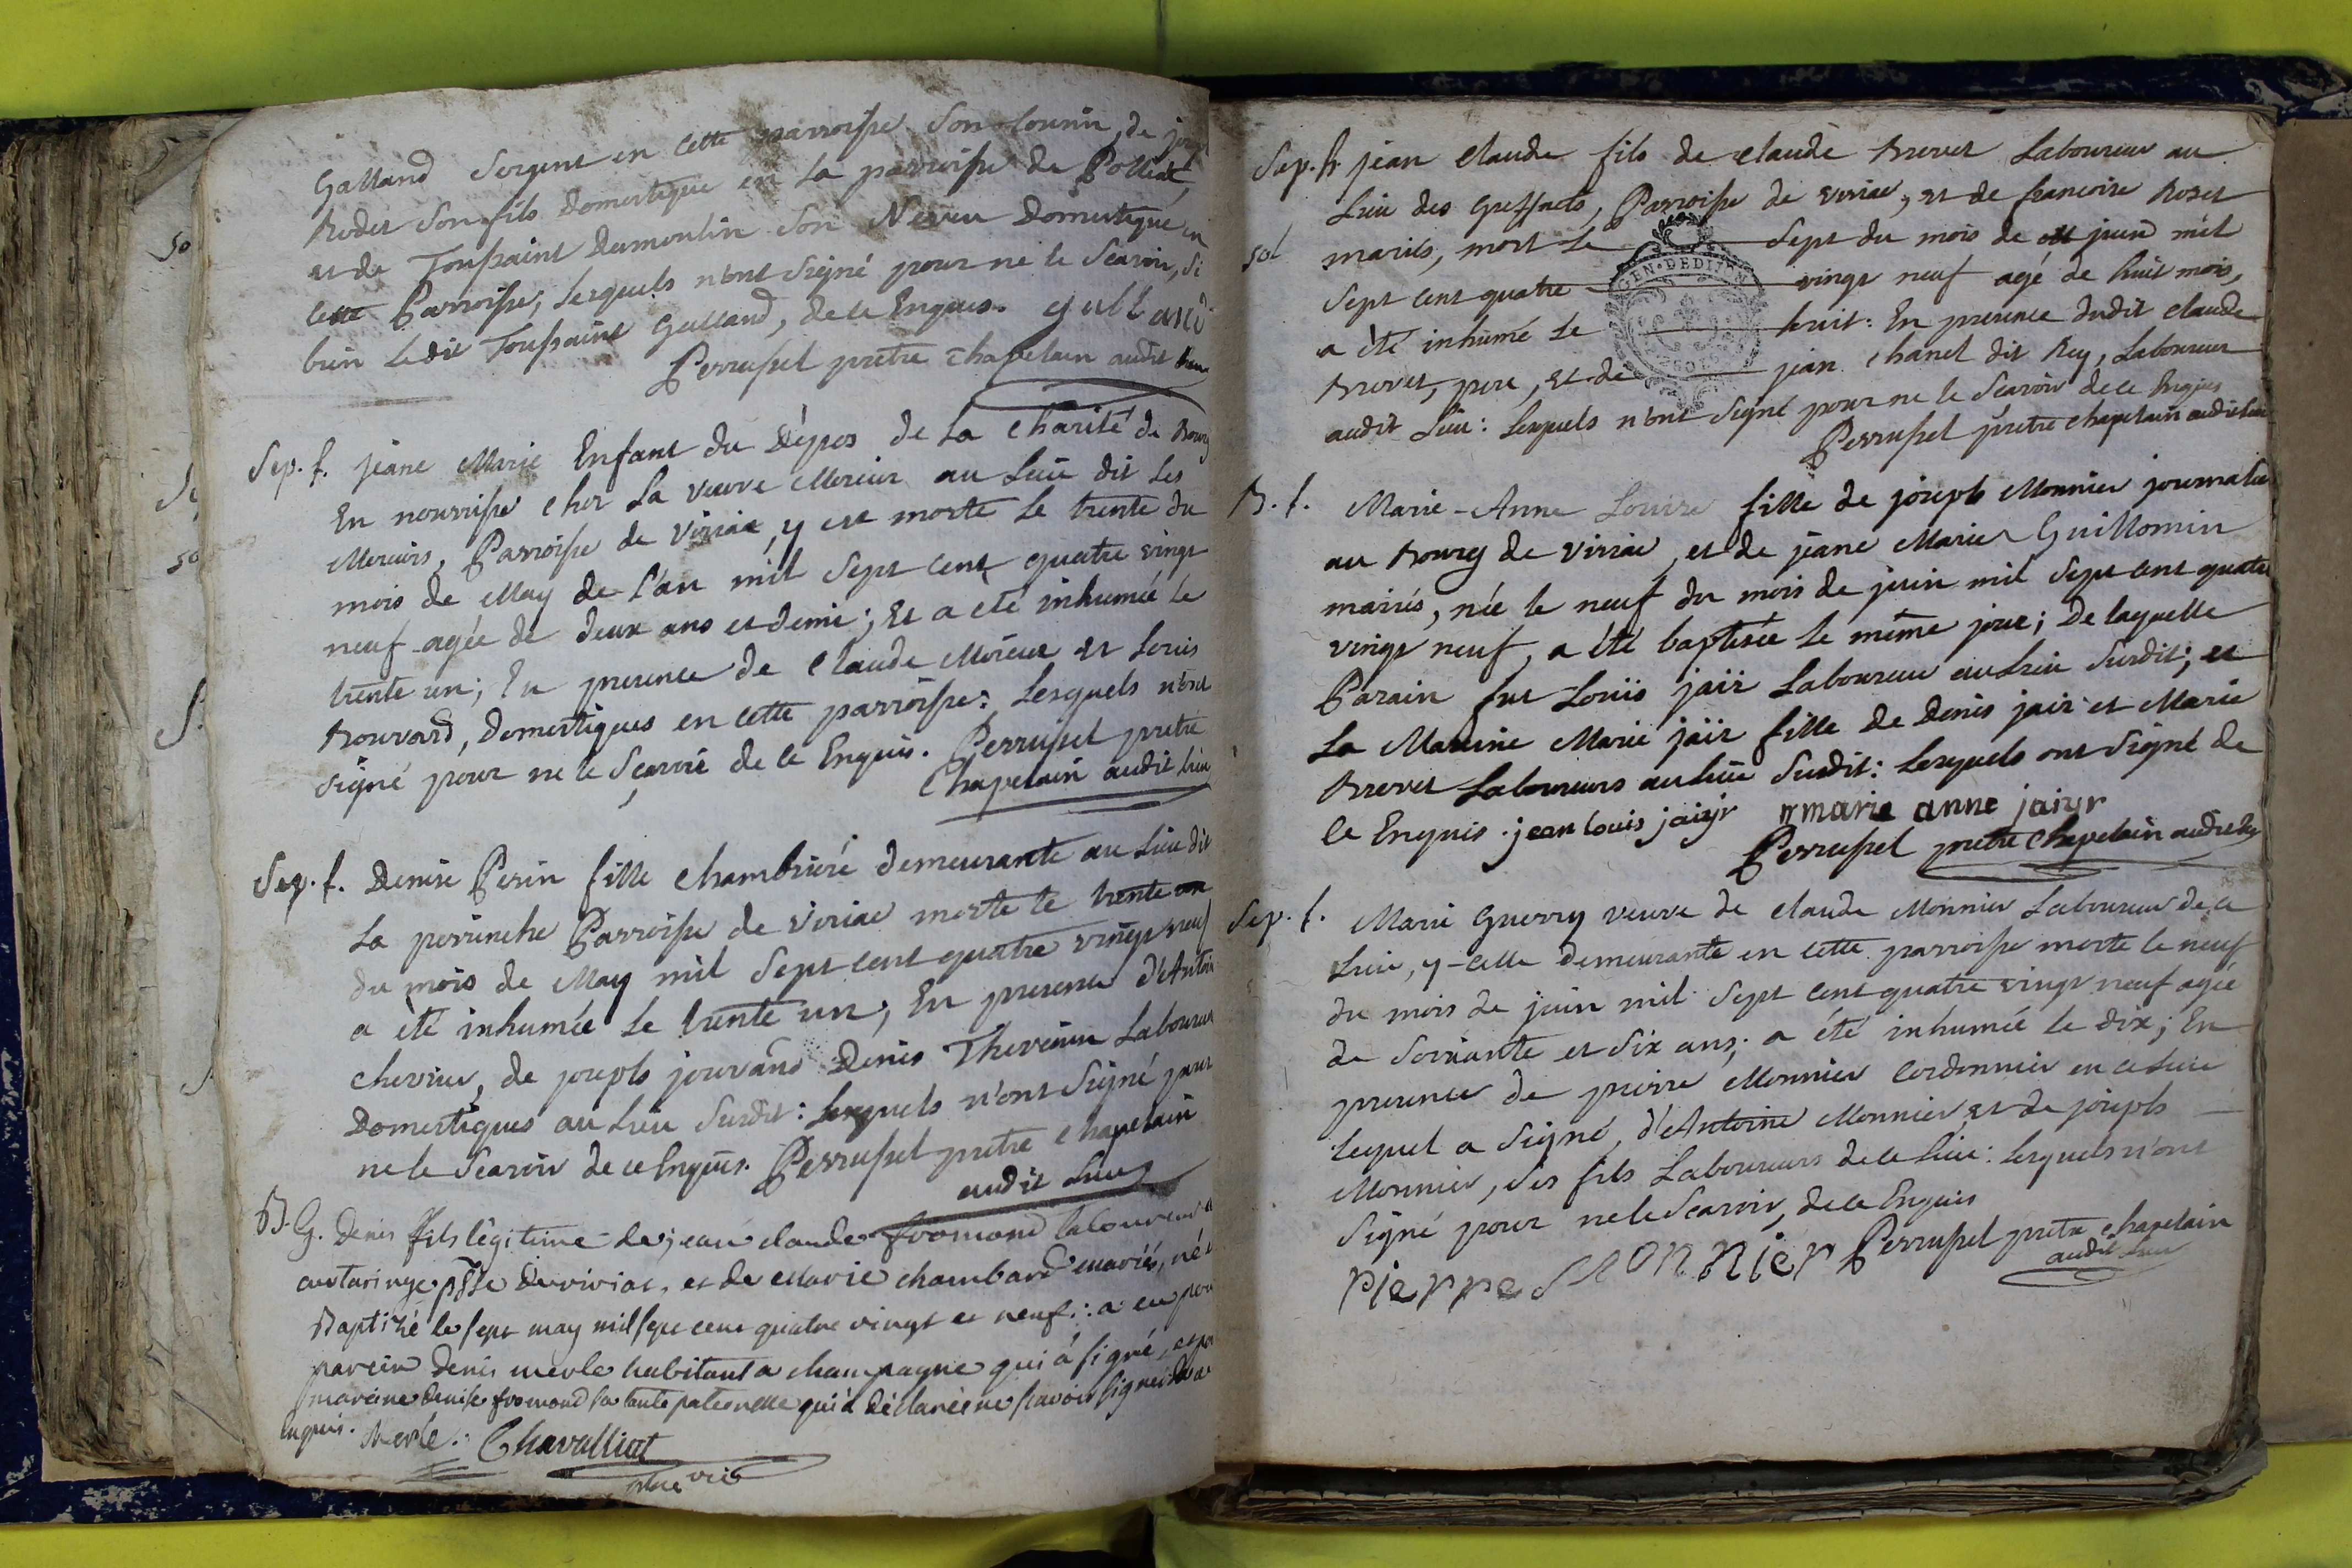 Galland Sergent en cette parroisse son cousin, de
Rodet son fils Domestique en la parroisse de Polliat,
et de Toussaint Dumoulin son Neveu Domestique en
cette Parroisse; Lesquels n'ont signé pour ne le sçavoir, si
bien ledit Toussaint Galland, de ce Enquis. galland
Perrussel prêtre chapelain audit
Sep. f. jeane Marie Enfant du Dépos de la charité de Bourg
En nourrisse chez la veuve Mercier au Lieu dit Les
Merciers, Parroisse de viriat, y est morte le trente du
mois de May de l'an mil sept cent quatre vingt
neuf agée de deux ans et demie; Et a été inhumée le
trente un; En presence de Claude Moreur et Louis
Bouvard, Domestiques en cette parroisse: Lesquels n'ont
signé pour ne le sçavoir de ce Enquis. Perrussel prêtre
Chapelain audit Lieu
Sep. f. Denise Perin fille chambrière demeurante au Lieu dit
La perrinche Parroisse de viriat morte le trente un
du mois de May mil sept cent quatre vingt neuf
a été inhumée le trente un; En presence d'Antoine
chevrier, de joseph jourand Denis Thevenin Laboureur
Domestiques au Lieu susdit: Lesquels n'ont signé pour
ne le sçavoir de ce Enquis. Perrussel prêtre chapelain
audit Lieu
B. G. Denis fils légitime de jean claude fromond laboureur
au taringe psse de viriat, et de Marie chambard mariés, né
Baptizé le sept may mil sept cent quatre vingt et neuf: a eu pour
parein denis merle habitant a champagne qui a signé, et pour
mareine denise fromond sa tante paternelle qui a déclaré ne sçavoir signer de ce
Enquis. Merle. Chavalliat
vic
Sep. f. jean claude fils de claude Brevet Laboureur au
Lieu des Greffets, Parroisse de viriat, et de francoise Rozet
sol mariés, mort le sept du mois de juin mil
sept cent quatre vingt neuf agé de huit mois,
a été inhumé le huit: En presence dudit claude
Brevet, pere, et de jean chanel dit Rey, Laboureur
audit Lieu: Lesquels n'ont signé pour ne le sçavoir de ce Enquis
Perrussel prêtre chapelain audit Lieu
GEN. DEDIJON
B. f. Marie-Anne Louise fille de joseph Monnier journalier
au Bourg de viriat, et de jeane Marie Guillomin
mariés, née le neuf du mois de juin mil sept cent quatre
vingt neuf, a été baptisée le même jour; De laquelle
Parain fut Louis jair Laboureur au Lieu susdit; et
La Maraine Marie jair fille de Denis jair et Marie
Brevet Laboureurs au Lieu susdit: Lesquels ont signé de
ce Enquis. jean louis jaiyr marie anne jaiyr
Perrussel prêtre chapelain audit Lieu
Sep. f. Marie Guerry veuve de claude Monnier Laboureur de ce
Lieu, y-celle demeurante en cette parroisse morte le neuf
du mois de juin mil sept cent quatre vingt neuf agée
de soixante et six ans; a été inhumée le dix; En
presence de pierre Monnier Cordonnier en ce Lieu
Lequel a signé, d'Antoine Monnier, et de joseph
Monnier, ses fils Laboureurs de ce Lieu: Lesquels n'ont
signé pour ne le sçavoir, de ce Enquis
pierre MONNier Perrussel prêtre chapelain
audit Lieu